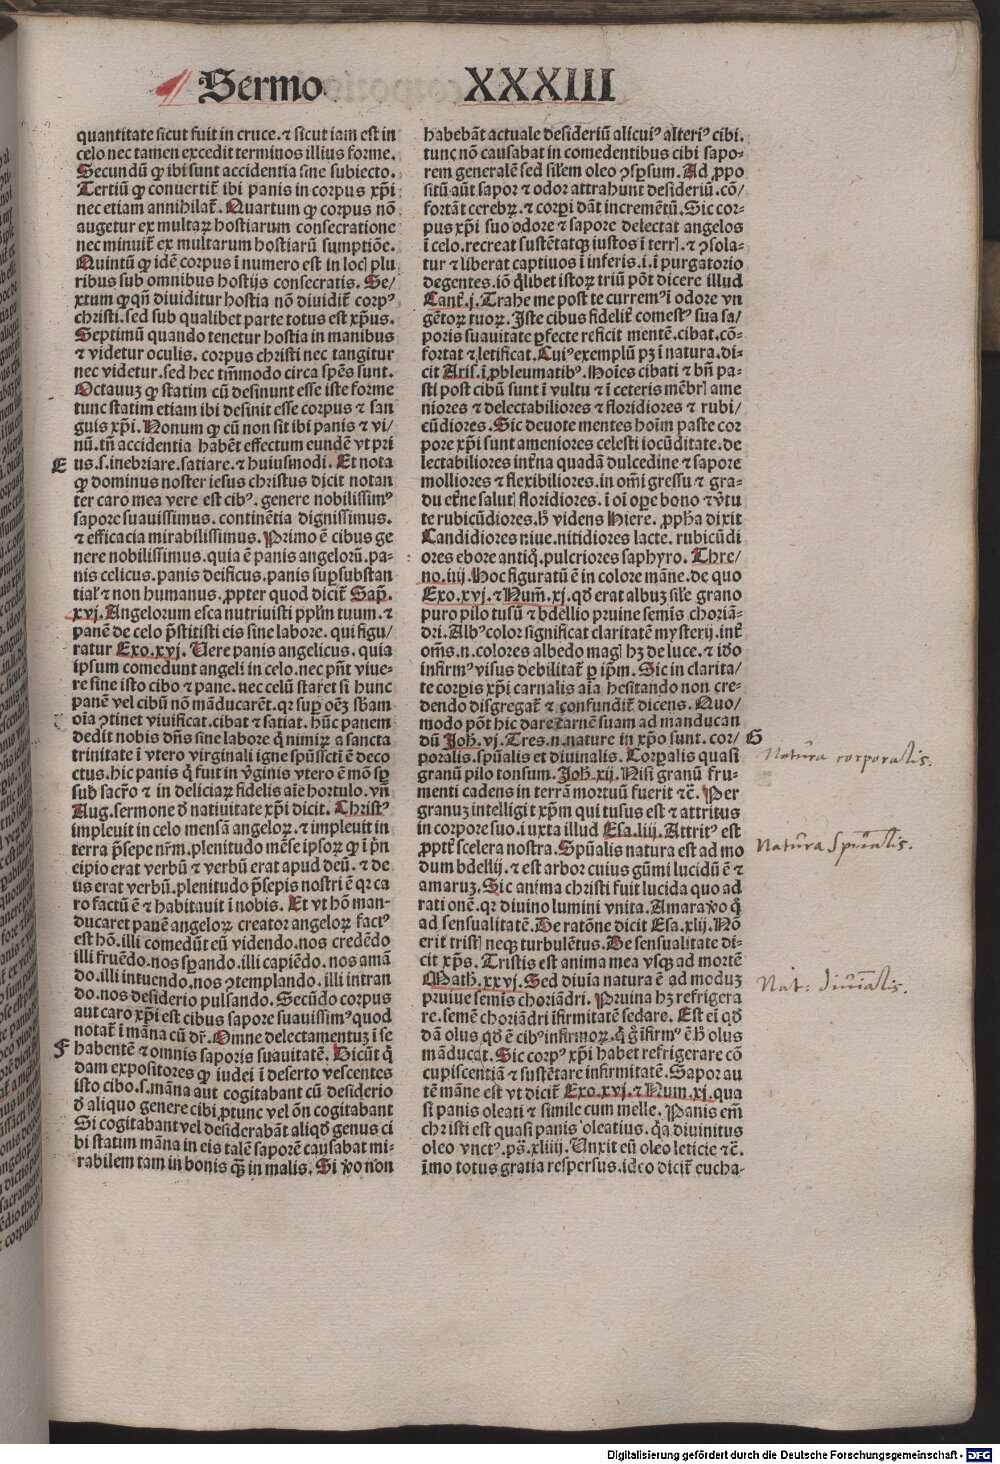 Sermo XXXIII
quantitate sicut fuit in cruce. ⁊ sicut iam est in
celo nec tamen excedit terminos illius forme.
Secundū ꝙ ibi sunt accidentia sine subiecto.
Tertiū ꝙ conuertit̄ ibi panis in corpus xp̄i
nec etiam annihilat̄. Quartum ꝙ corpus nō
augetur ex multaꝝ hostiarum consecratione
nec minuit̄ ex multarum hostiarū sumptiōe.
Quintū ꝙ idē corpus ī numero est in locꝭ plu
ribus sub omnibus hostijs consecratis. Se/
xtum ꝙ qn̄ diuiditur hostia nō diuidit̄ corpꝰ
christi. sed sub qualibet parte totus est xp̄us.
Septimū quando tenetur hostia in manibus
⁊ videtur oculis. corpus christi nec tangitur
nec videtur. sed hec tm̄modo circa spēs sunt.
Octauuꝫ ꝙ statim cū desinunt esse iste forme
tunc statim etiam ibi desinit esse corpus ⁊ san
guis xp̄i. Nonum ꝙ cū non sit ibi panis ⁊ vi/
nū. tn̄ accidentia habēt effectum eundē vt pri
E us. s. inebriare. satiare. ⁊ huiusmodi. Et nota
ꝙ dominus noster iesus christus dicit notan
ter caro mea vere est cibꝰ. genere nobilissimꝰ
sapore suauissimus. continētia dignissimus.
⁊ efficacia mirabilissimus. Primo ē cibus ge
nere nobilissimus. quia ē panis angelorū. pa-
nis celicus. panis deificus. panis suꝑsubstan
tial̄ ⁊ non humanus. ꝓpter quod dicit̄ Sap̄.
xvj. Angelorum esca nutriuisti pp̄lm tuum. ⁊
panē de celo p̄stitisti eis sine labore. qui figu/
ratur Exo. xvj. Uere panis angelicus. quia
ipsum comedunt angeli in celo. nec pn̄t viue-
re sine isto cibo ⁊ pane. nec celū staret si hunc
panē vel cibū nō māducarēt. qꝛ suꝑ oēꝫ sb̄am
oīa ꝯtinet viuificat. cibat ⁊ satiat. hūc panem
dedit nobis dn̄s sine labore q̄ nimiꝝ a sancta
trinitate ī vtero virginali igne spūssc̄ti ē deco
ctus. hic panis q̄ fuit in v̄ginis vtero ē mō sꝑ
sub sacr̄o ⁊ in deliciaꝝ fidelis aīe hortulo. vn̄
Aug. sermone ꝺ̄ natiuitate xp̄i dicit. Christꝰ
impleuit in celo mensā angeloꝝ. ⁊ impleuit in
terra p̄sepe nr̄m. plenitudo mēse ipsoꝝ ꝙ ī p̄n
cipio erat verbū ⁊ verbū erat apud deū. ⁊ de
us erat verbū. plenitudo p̄sepis nostri ē qꝛ ca
ro factū ē ⁊ habitauit ī nobis. Et vt hō man-
ducaret panē angeloꝝ creator angeloꝝ factꝰ
est hō. illi comedūt eū videndo. nos credēdo
illi fruēdo. nos sperando. illi capiēdo. nos amā
do. illi intuendo. nos ꝯtemplando. illi intran
do. nos desiderio pulsando. Secūdo corpus
aut caro xp̄i est cibus sapore suauissimꝰ quod
notat̄ ī māna cū dr̄. Omne delectamentuꝫ ī se
F habentē ⁊ omnis saporis suauitatē. Dicūt q̄
dam expositores ꝙ iudei ī deserto vescentes
isto cibo. s. māna aut cogitabant cū desiderio
ꝺ̄ aliquo genere cibi ꝓtunc vel ōn cogitabant
Si cogitabant vel desiderabāt aliqꝺ̄ genus ci
bi statim māna in eis talē saporē causabat mi-
rabilem tam in bonis qꝫ̄ in malis. Si v̄o non
habebāt actuale desideriū alicuiꝰ alteriꝰ cibi.
tunc nō causabat in comedentibus cibi sapo-
rem generalē sed sil̄em oleo ꝯsꝑsum. Ad ꝓpo
sitū aūt sapor ⁊ odor attrahunt desideriū. cō/
fortāt cerebꝝ. ⁊ corpi dāt incremētū. Sic cor-
pus xp̄i suo odore ⁊ sapore delectat angelos
ī celo. recreat sustētatqꝫ iustos ī terrꝭ. ⁊ ꝯsola-
tur ⁊ liberat captiuos ī inferis. i. ī purgatorio
degentes. iō q̄libet istoꝝ triū pōt dicere illud
Cant̄. j. Trahe me post te curremꝰ ī odore vn
gētoꝝ tuoꝝ. Iste cibus fidelit̄ comestꝰ sua sa/
poris suauitate ꝑfecte reficit mentē. cibat. cō-
fortat ⁊ letificat. Cuiꝰ exemplū pꝫ ī natura. di-
cit Aris. ī ꝓbleumatibꝰ. Hoīes cibati ⁊ bn̄ pa-
sti post cibū sunt ī vultu ⁊ ī ceteris mēbrꝭ ame
niores ⁊ delectabiliores ⁊ floridiores ⁊ rubi/
cūdiores. Sic deuote mentes hoīm paste cor
pore xp̄i sunt ameniores celesti iocūditate. de
lectabiliores int̄na quadā dulcedine ⁊ sapore
molliores ⁊ flexibiliores. in om̄i gressu ⁊ gra-
du et̄ne salutꝭ floridiores. ī oī oꝑe bono ⁊ v̄tu
te rubicūdiores. h̄ videns Hiere. ꝓph̄a dixit
Candidiores niue. nitidiores lacte. rubicūdi
ores ebore antiq̄. pulcriores saphyro. Thre/
no. iiij. Hoc figuratū ē in colore māne. de quo
Exo. xvj. ⁊ Num̄. xj. qꝺ̄ erat albuꝫ sil̄e grano
puro pilo tusū ⁊ bdellio pruine semis choriā-
dri. Albꝰ color significat claritatē mysterij. int̄
om̄s. n. colores albedo magꝭ hꝫ de luce. ⁊ iō
infirmꝰ visus debilitat̄ ꝑ ip̄m. Sic in clarita/
te corꝑis xp̄i carnalis aīa hesitando non cre-
dendo disgregat̄ ⁊ confundit̄ dicens. Quo/
modo pōt hic dare carnē suam ad manducan
dū Joh̄. vj. Tres. n. nature in xp̄o sunt. cor/ G
poralis. spūalis et diuinalis. Corꝑalis quasi
granū pilo tonsum. Joh̄. xij. Nisi granū fru-
menti cadens in terrā mortuū fuerit ⁊c̄. Per
granuꝫ intelligit xp̄m qui tusus est ⁊ attritus
in corpore suo. i uxta illud Esa. liij. Attritꝰ est
ꝓpt̄ scelera nostra. Spūalis natura est ad mo
dum bdellij. ⁊ est arbor cuius gūmi lucidū ē ⁊
amaruꝫ. Sic anima christi fuit lucida quo ad
rationē. qꝛ diuino lumini vnita. Amara v̄o q̄
ad sensualitatē. De ratōne dicit Esa. xlij. Nō
erit tristꝭ neqꝫ turbulētus. De sensualitate di-
cit xp̄s. Tristis est anima mea vsqꝫ ad mortē
Math̄. xxvj. Sed diuīa natura ē ad moduꝫ
pruiue semis choriādri. Pruina hꝫ refrigera
re. semē choriādri īfirmitatē sedare. Est ei qꝺ̄
dā olus qꝺ̄ ē cibꝰ infirmoꝝ. q̄ ḡ īfirmꝰ ē h̄ olus
māducat. Sic corpꝰ xp̄i habet refrigerare cō
cupiscentiā ⁊ sustētare infirmitatē. Sapor au
tē māne est vt dicit̄ Exo. xvj. ⁊ Num. xj. qua
si panis oleati ⁊ simile cum melle. Panis em̄
christi est quasi panis oleatius. q̄a diuinitus
oleo vnctꝰ. ps̄. xliiij. Unxit eū oleo leticie ⁊c̄.
ī mo totus gratia respersus. ideo dicit̄ eucha-
Natura corporalis.
Natura Spūalis.
Nat: diuīalis.
Digitalisierung gefördert durch die Deutsche Forschungsgemeinschaft - DFG